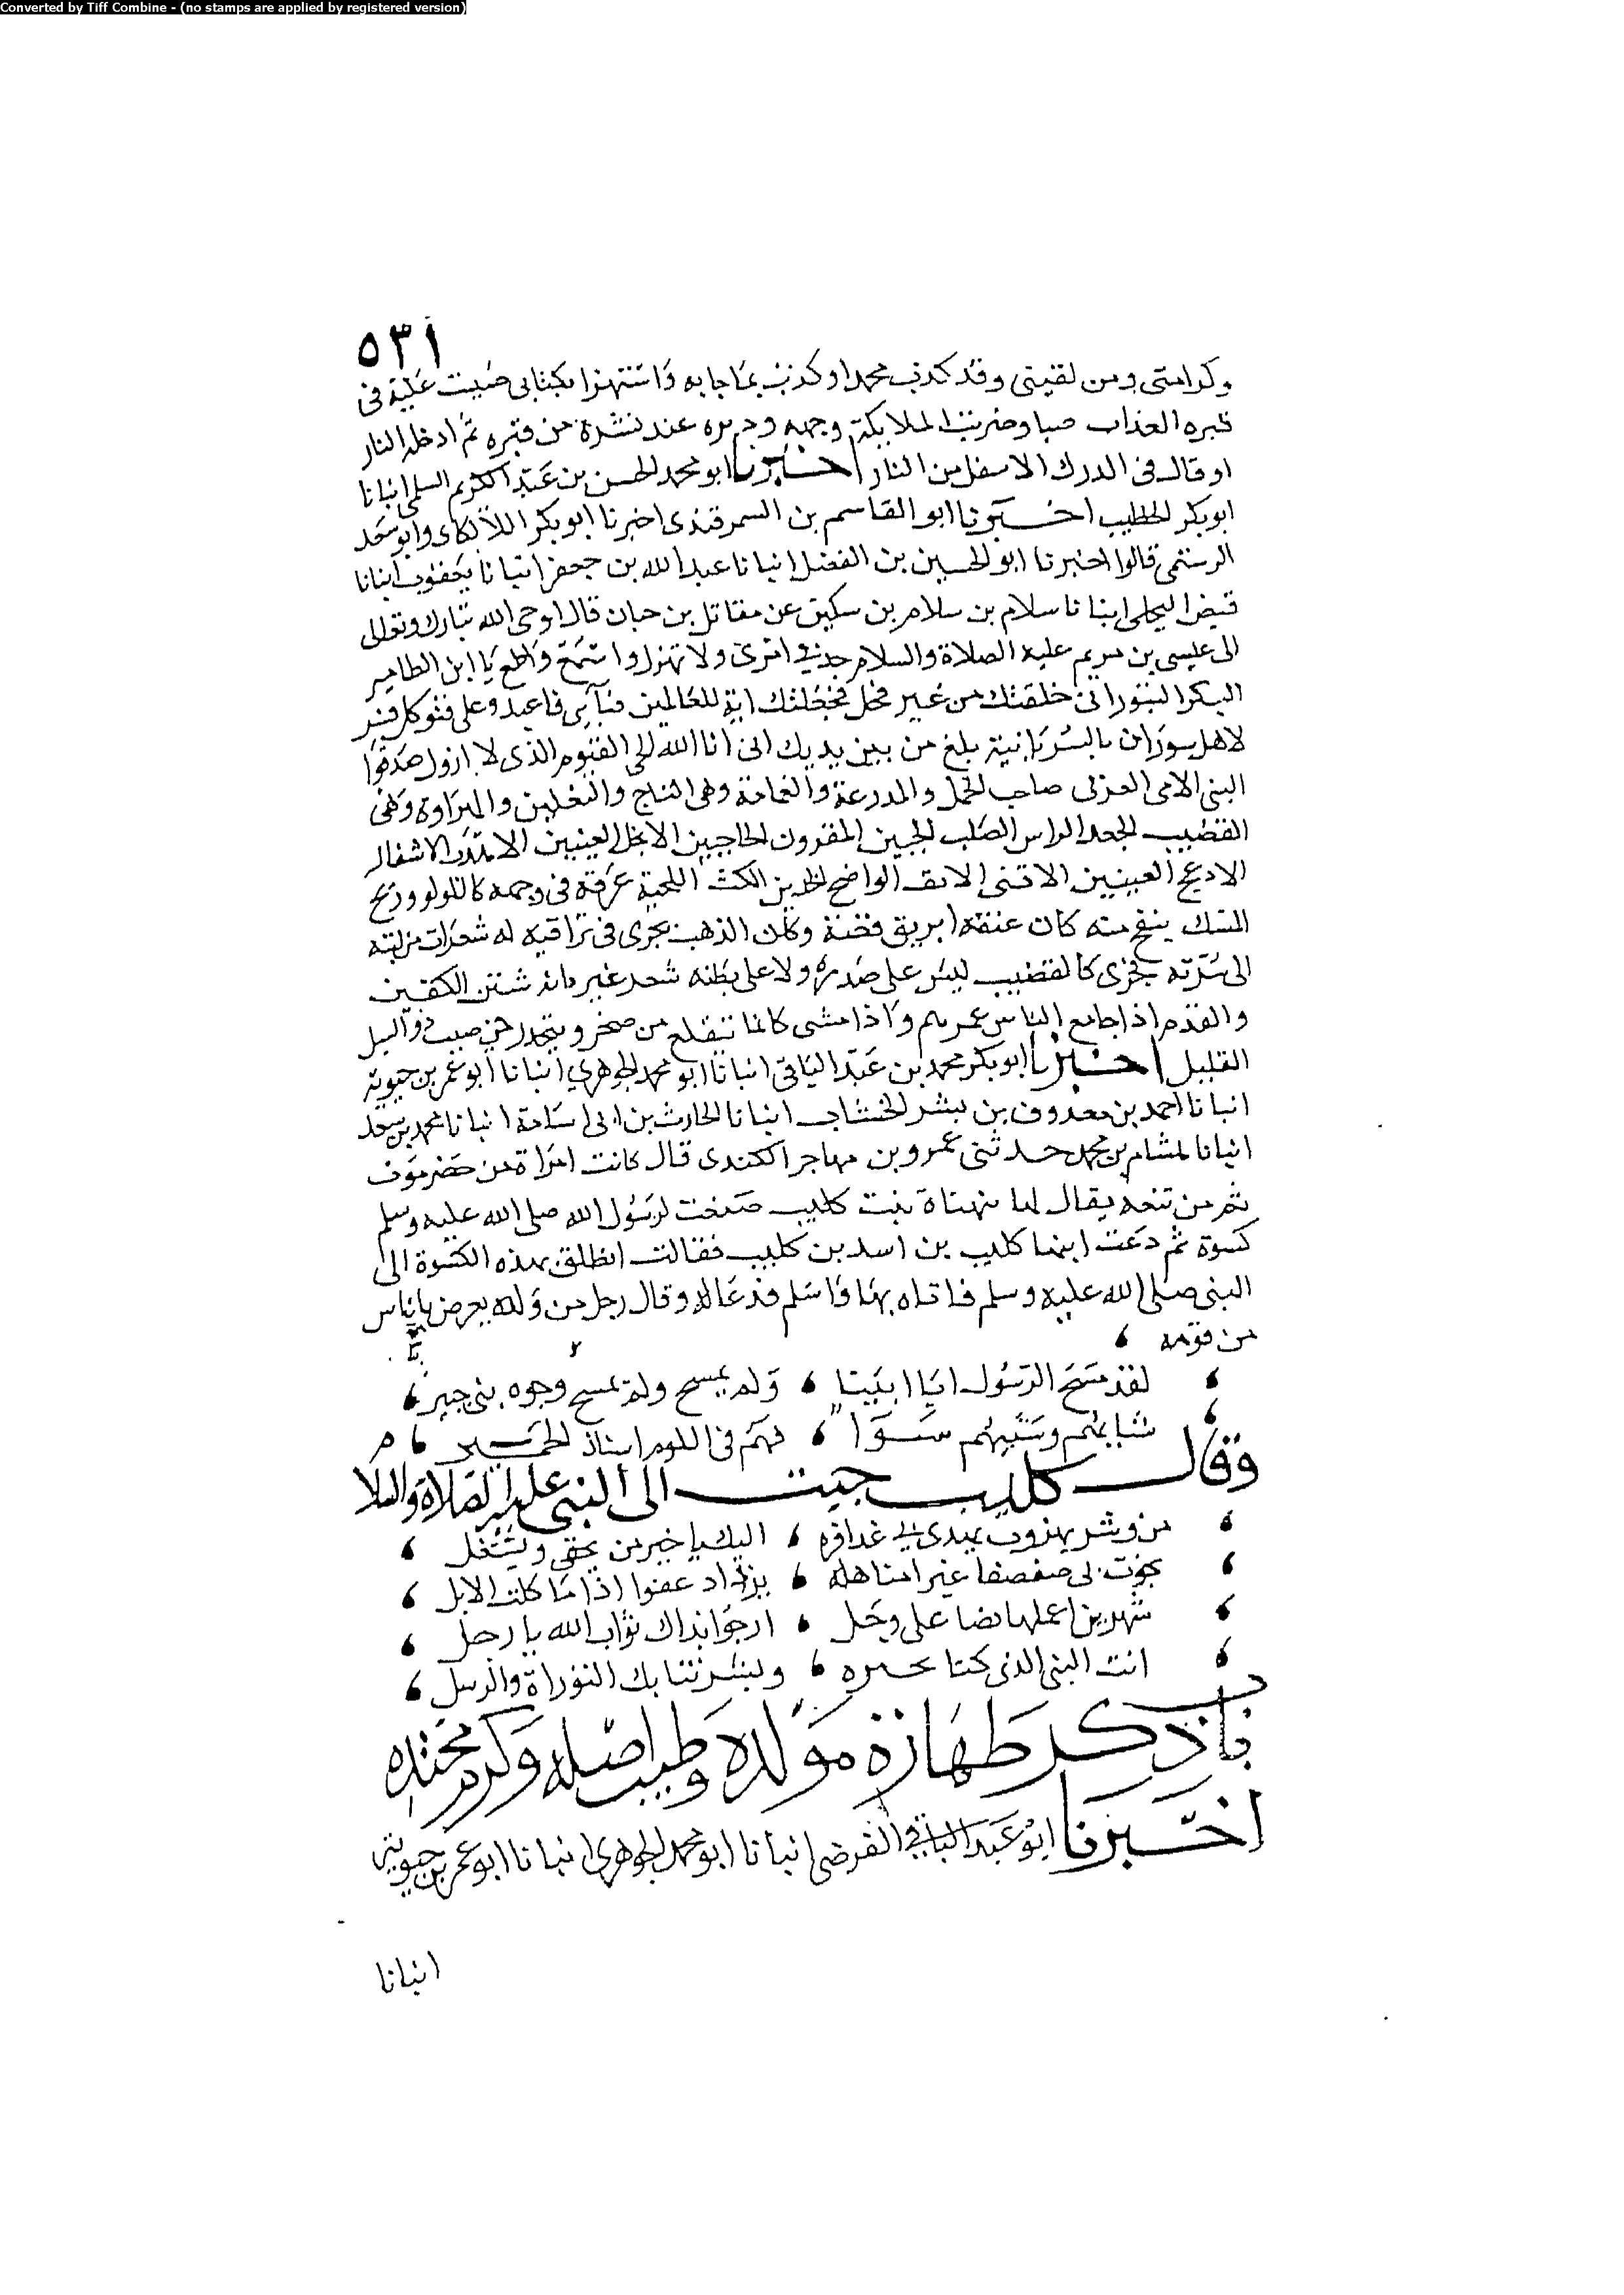 Converted by Tiff Combine - (no stamps are applied by registered version)
٥٣١
وكرامتى ومن لقينى وقد كذب محمدا وكذب بما جا به واستهزا بكتابى صبيت عليه فى
قبره العذاب صبا وضربت الملايكة وجهه ودبره عند نشره من قبره ثم ادخله النار
او قال فى الدرك الاسفل من النار اخبرنا ابو محمد الحسن بن عبد الكريم السلمى انبانا
ابو بكر الخطيب اخبرنا ابو القاسم بن السمرقندى اخبرنا ابو بكر اللالكاى وابو سعد
الرستمى قالوا اخبرنا ابو الحسين بن الفضل انبانا عبد الله بن جعفر انبانا يعقوب انبانا
فيض البجلى انبانا سلام بن سلام بن سكين عن مقاتل بن حبان قال اوحى الله تبارك وتعالى
الى عيسى بن مريم عليه الصلاة والسلام جد فى امرى ولا تهزل واسمع واطع يا ابن الطاهر
البكر البتور انى خلقتك من غير فحل فجعلتك اية للعالمين فاياى فاعبد وعلى فتوكل فسر
لاهل سوران بالسريانية بلغ من بين يديك انى انا الله الحى القيوم الذى لا ازول صدقوا
النبى الامى العربى صاحب الجمل والمدرعة والعمامة وهى التاج والنعلين والهراوة وهى
القضيب الجعد الراس الصلب الجبين المقرون الحاجبين الانجل العينين الاهدب الاشفار
الادعج العينين الاقنى الانف الواضح الخدين الكث اللحية عرقه فى وجهه كاللولو وريح
المسك ينفح منه كان عنقه ابريق فضة وكان الذهب يجرى فى تراقيه له شعرات من لبته
الى سرته تجرى كالقضيب ليس على صدره ولا على بطنه شعر غيره شثن الكفين
والقدم اذا جامع الناس غمرهم واذا مشى كانما تنقلع من صخر ويتحدر فى صبب ذو النسل
القليل اخبرنا ابو بكر محمد بن عبد الباقى انبانا ابو محمد الجوهرى انبانا ابو عمر بن حيوية
انبانا احمد بن معروف بن بشر الخشاب انبانا الحارث بن ابى اسامة انبانا محمد بن سعد
انبانا هشام بن محمد حدثنى عمرو بن مهاجر الكندى قال كانت امراة من حضرموت
ثم من تنعه يقال لها تهناة بنت كليب صنعت لرسول الله صلى الله عليه وسلم
كسوة ثم دعت ابنها كليب بن اسد بن كليب فقالت انطلق بهذه الكسوة الى
النبى صلى الله عليه وسلم فاتاه بها واسلم فدعا له وقال رجل من ولده يعرض بناس
من قومه
لقد مسح الرسول ابا ابينا ، ولم يمسح وجوه بنى
شبابهم وشيبهم سوآ ، فهم فى اللوم اسنان الحمير
وقال كليب حيت الى النبى عليه الصلاة والسلا م
من وشر برهوت يهدى بى عذافره ، اليك يا خير من يحفى وينتعل
تجوب بى صفصفا غبر امناهله ، يزداد عفوا اذا ما كلت الابل
شهرين اعملها نصا على وجل ، ارجو بذاك ثواب الله يا رجل
انت النبى الذى كنا نخبره ، وبشرتنا بك التوراة والرسل
باب ذكر طهارة مولده وطيب اصله وكرم محتده
اخبرنا ابو عبد الباقى الفرضى انبانا ابو محمد الجوهرى انبانا ابو عمر بن حيوية
انبانا